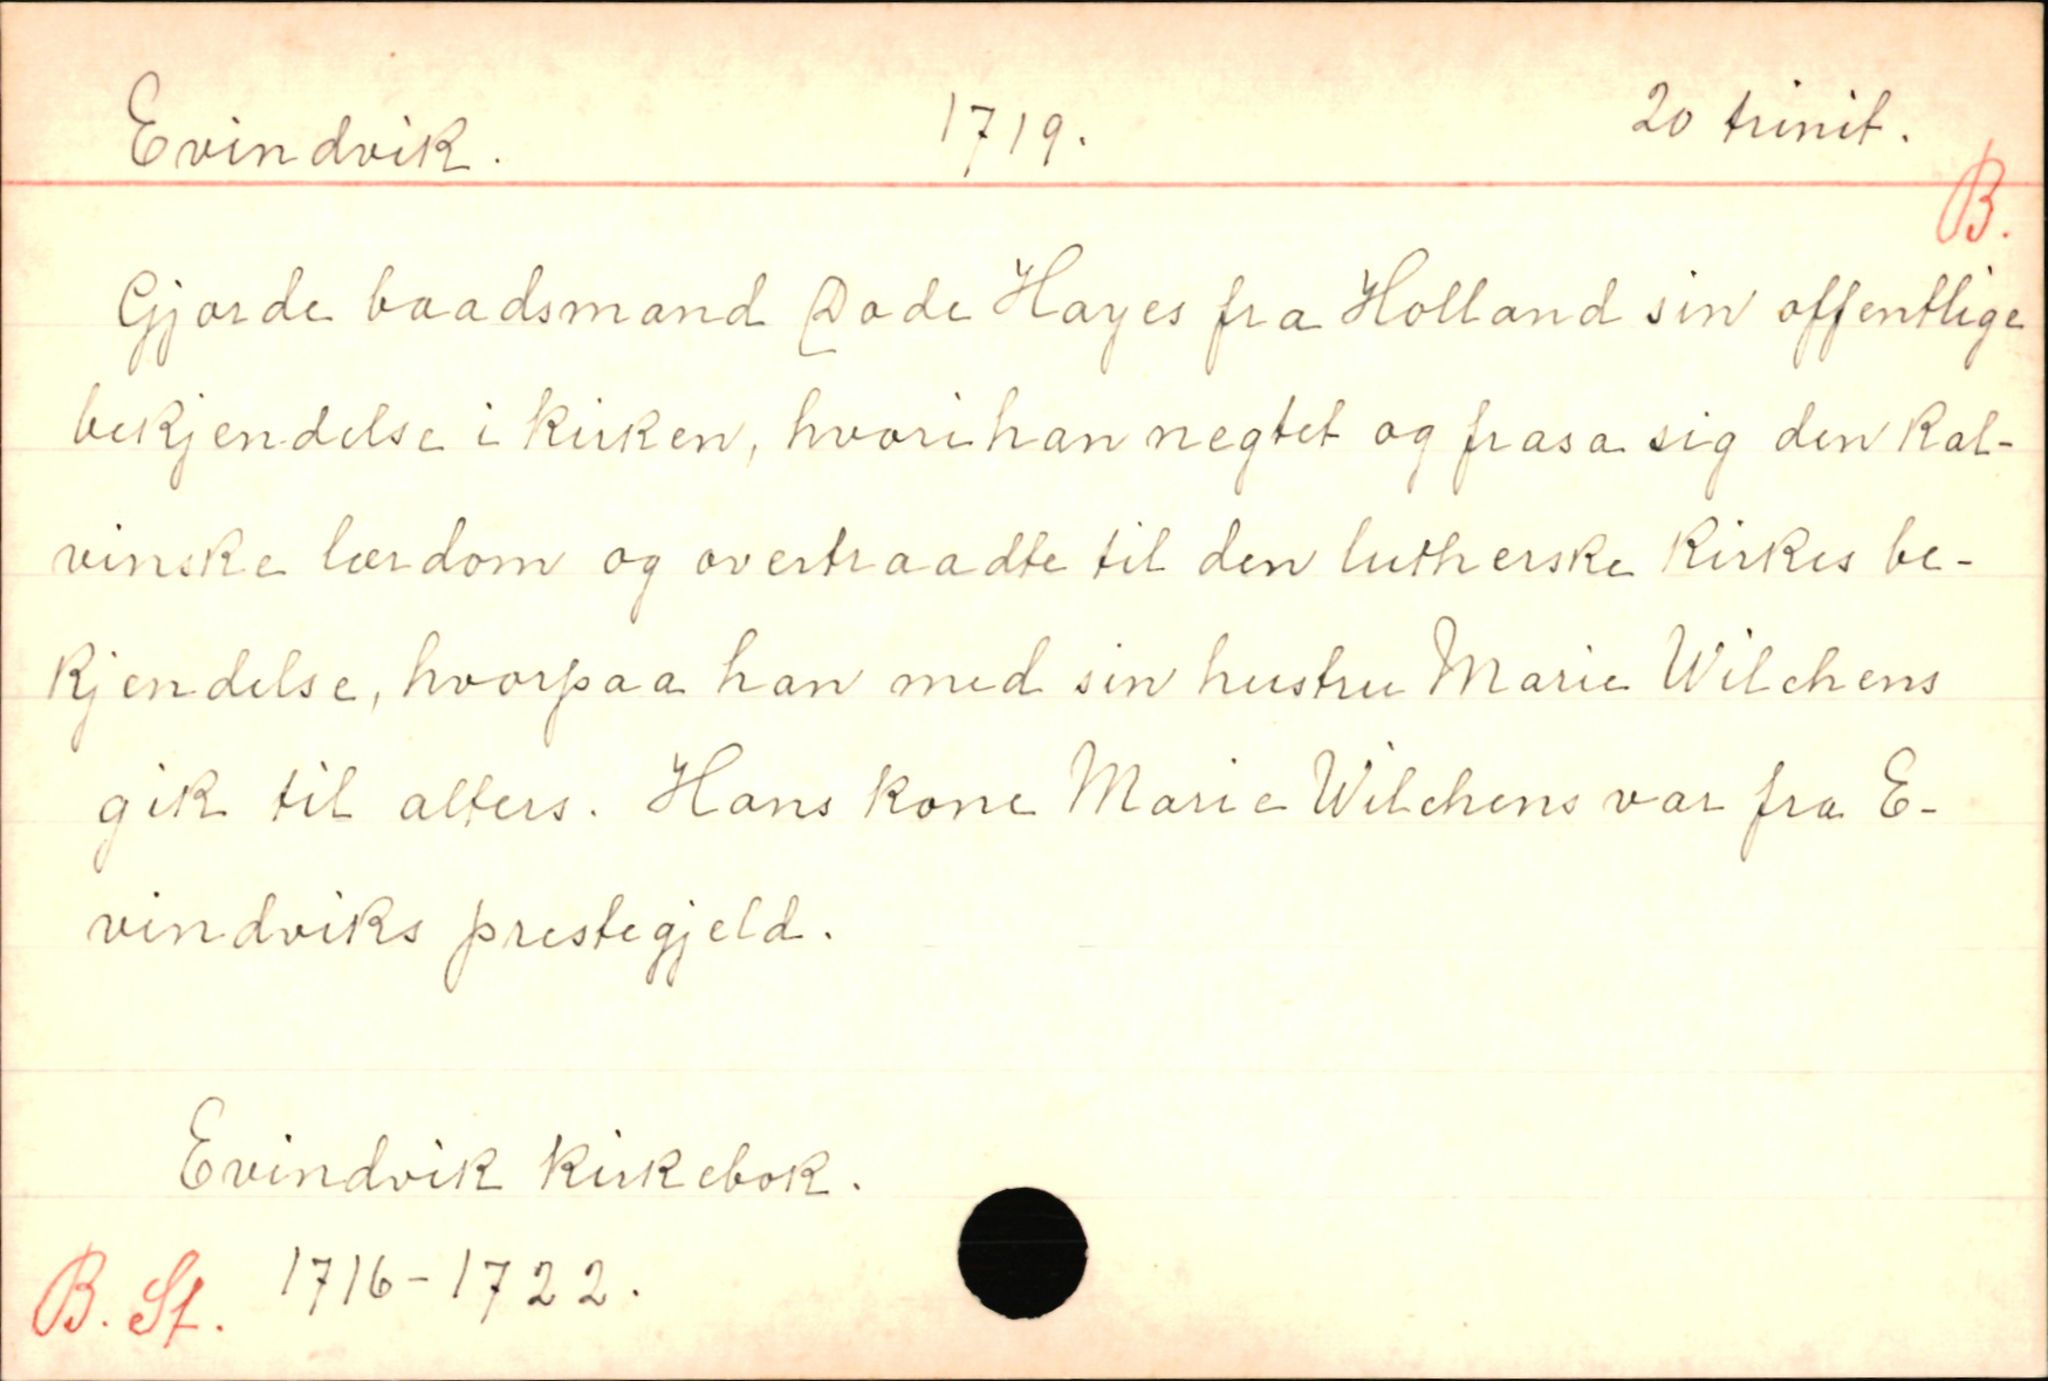 Evindvik. 1719. 20 trinit.
B.
Gjorde baadsmand Dode Hayes fra Holland sin offentlige
bekjendelse i kirken, hvori han negtet og frasa sig den kal-
vinske lærdom og overtraadte til den lutherske kirkes be-
kjendelse, hvorpaa han med sin hustru Marie Wilchens
gik til alters. Hans kone Marie Wilchens var fra E-
vindviks prestegjeld.
Evindvik kirkebok.
B. St. 1716-1722.